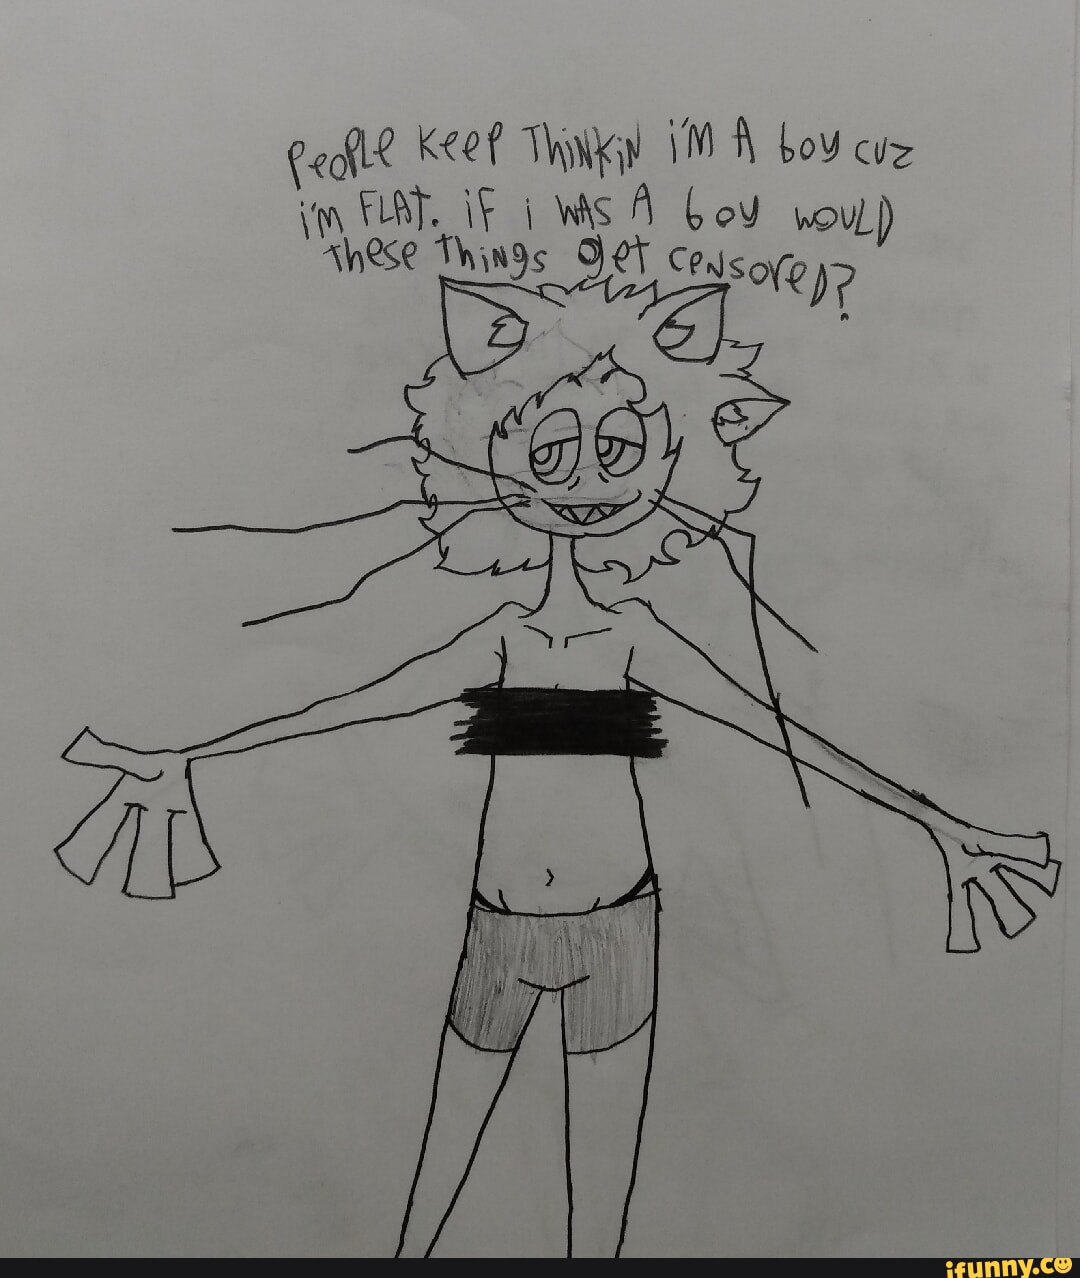 PeoPLe KeeP ThiNKiN i'M A boy cuz
i'm FLAT. iF i WAS A boy WOULD
these things get censoreD?
ifunny.co